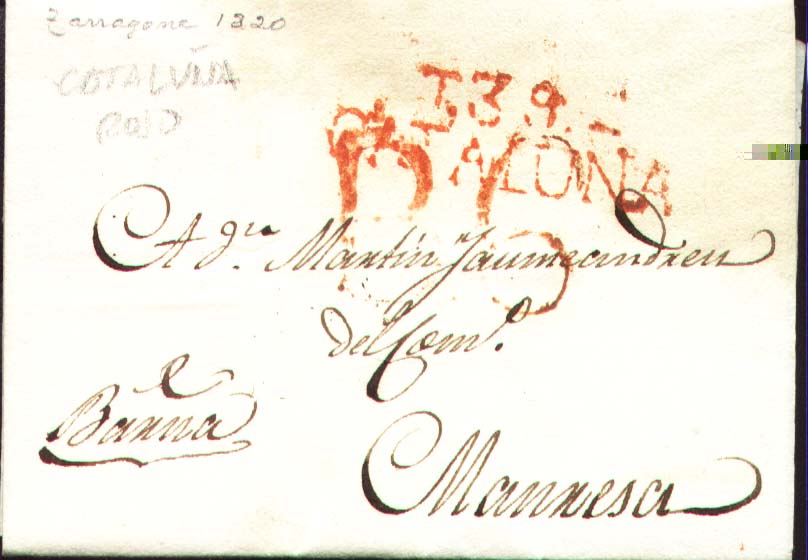 Zarragone 1820
COTALUÑA
ROJO
J.39.
CATALUÑA
A dn. Martin Jaumeandreu
del Comº.
e
Barna
Manresa